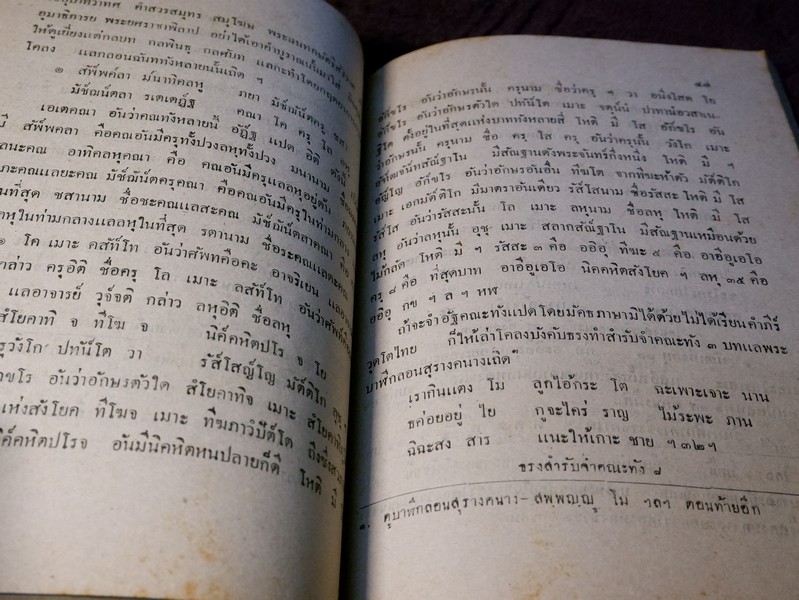 คำสวรสมุทร สมุโฆษ
อุมาธิการย พระยศราชาพิลาป อย่าได้เอาคำบูราณนั้นมาใส่
ให้ดูเยี่ยงแต่กลบท กลพินธุ กลศับท แลกะทำโดยกฤตย
โคลง แลกลอนฉันททังหลายนั้นเถิด ฯ
๑ สัพ์พค์ลา ม์นาทิคลหู ภยา มัช์ฌน์ตครุ
มัช์ฌน์ตลา รเตเตฏ์ฐ คณา โค ครุ โล
เอเตคณา อันว่าคณทังหลายนี้ อฏ์ฐ แปด อิติ ดั่งนี้
มี สัพ์พคลา คือคณอันมีครุทั้งปวงลหุทั้งปวง มนานาม ชื่อ
และนะคณ อาทิคลหุคณา คือ คณอันมีครุแลลหุอยู่ต้น
มาะคณะแลยะคณะ มัช์ฌน์ตครุคณา คือคณอันมีครุในท่ามกลาง
ในที่สุด ชสานาม ชื่อชะคณแลสะคณ มัช์ฌน์ตลาคณา คือ
ลหุในท่ามกลางแลลหุในที่สุด รตานาม ชื่อระคณแลตะคณ
๑ โค เมาะ คสัท์โท อันว่าศัพทคือคะ อาจริเยน แลอาจารย์
กล่าว ครุอิติ ชื่อครุ โล เมาะ ลสัท์โท อันว่าศัพท
แลอาจารย์ วุจ์จติ กล่าว ลหุอิติ ชื่อลหุ
สํโยคาทิ จ ทีโฆ จ นิค์คหิตปโร จ โย
ครุวังโก ปทัน์โต วา รัส์โสญ์โญ มัต์ติโก อุชุ
อักขโร อันว่าอักษรตัวใด สํโยคาทิจ เมาะ สํโยคาทิ
แห่งสังโยค ทีโฆจ เมาะ ทีฆภาววิปัต์โต ถึงซึ่ง
นิค์คหิตปโรจ อันมีนิคหิตหนปลายก็ดี โหติ มี
๔๘
อักขโร อันว่าอักษรนั้น ครุนาม ชื่อว่าครุ ฯ วา อนึ่งโสด โย
อัก์ขโร อันว่าอักษรตัวใด ปทัน์โต เมาะ
ฐิโต ตั้งอยู่ในที่สุดแห่งบาททังหลายสี่ โหติ มี โส อัก์ขโร อัน
ว่าอักษรนั้น ครุนาม ชื่อ ครุ โส ครุ อันว่าครุนั้น วังโก เมาะ
มีสัณฐานดังพระจันทร์กึ่งหนึ่ง โหติ มี ฯ
อัญ์โญ อัก์ขโร อันว่าอักษรอันอื่น ที่ฆโต จากทีฆะห้าตัว มัต์ติโก
เมาะ เอกมัต์ติโก มีมาตราอันเดียว รัส์โสนาม ชื่อรัสสะ โหติ มี โส
รัส์โส อันว่ารัสสะนั้น โล เมาะ ลหุนาม ชื่อลหุ โหติ มี โส
ลหุ อันว่าลหุนั้น อุชุ เมาะ สลากสัณ์ฐาโน มีสัณฐานเหมือนด้วย
ไม้กลัด โหติ มี ฯ รัสสะ ๓ คือ ออิอุ ทีฆะ ๕ คือ อาอีอูเอโอ
ครุ ๘ คือ ที่สุดบาท อาอีอูเอโอ นิคคหิตสังโยค ฯ ลหุ ๓๕ คือ
ออิอุ กข ฯ ล ฯ หฬ
ถ้าจะจำอัฐคณะทังแปดโดยมัคธภาษามิได้ด้วยไม่ได้เรียนคำภีร์
วุตโตไทย ก็ให้เล่าโคลงบังคับธรงทำสำรับจำคณะทัง ๓ บทแลพระ
บาฬีกลอนสุรางคนางเถิด
เรากินแตง โม ลูกไอ้กระ โต ฉะเพาะเจาะ นาน
ธค่อยอยู่ ไย กูจะไคร่ ราญ ไม้ระพะ ภาน
ฉิฉะสง สาร แนะให้เกาะ ชาย ฯ ๓๒ ฯ
ธรงสำรับจำคณะทัง ๘
๑. ดูบาฬีกลอนสุรางคนาง - สพฺพญฺญู โม ฯลฯ ตอนท้ายอีก